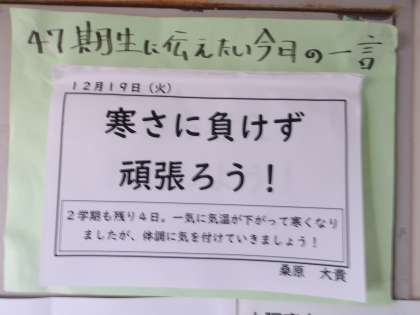 47期生に伝えたい今日の一言
12月19日（火）
寒さに負けず
頑張ろう！
2学期も残り4日。一気に気温が下がって寒くなり
ましたが、体調に気を付けていきましょう！
桑原　大貴